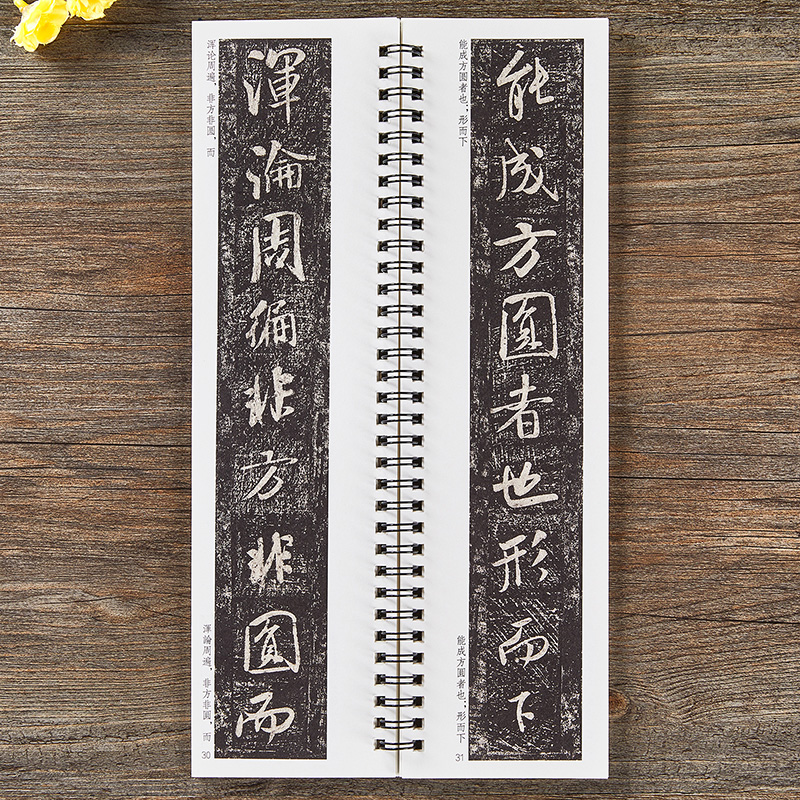 浑沦周遍，非方非圆，而
渾淪周徧非方非圓而
渾淪周遍，非方非圓，而
30
能成方圆者也；形而下
能成方圓者也形而下
能成方圓者也；形而下
31